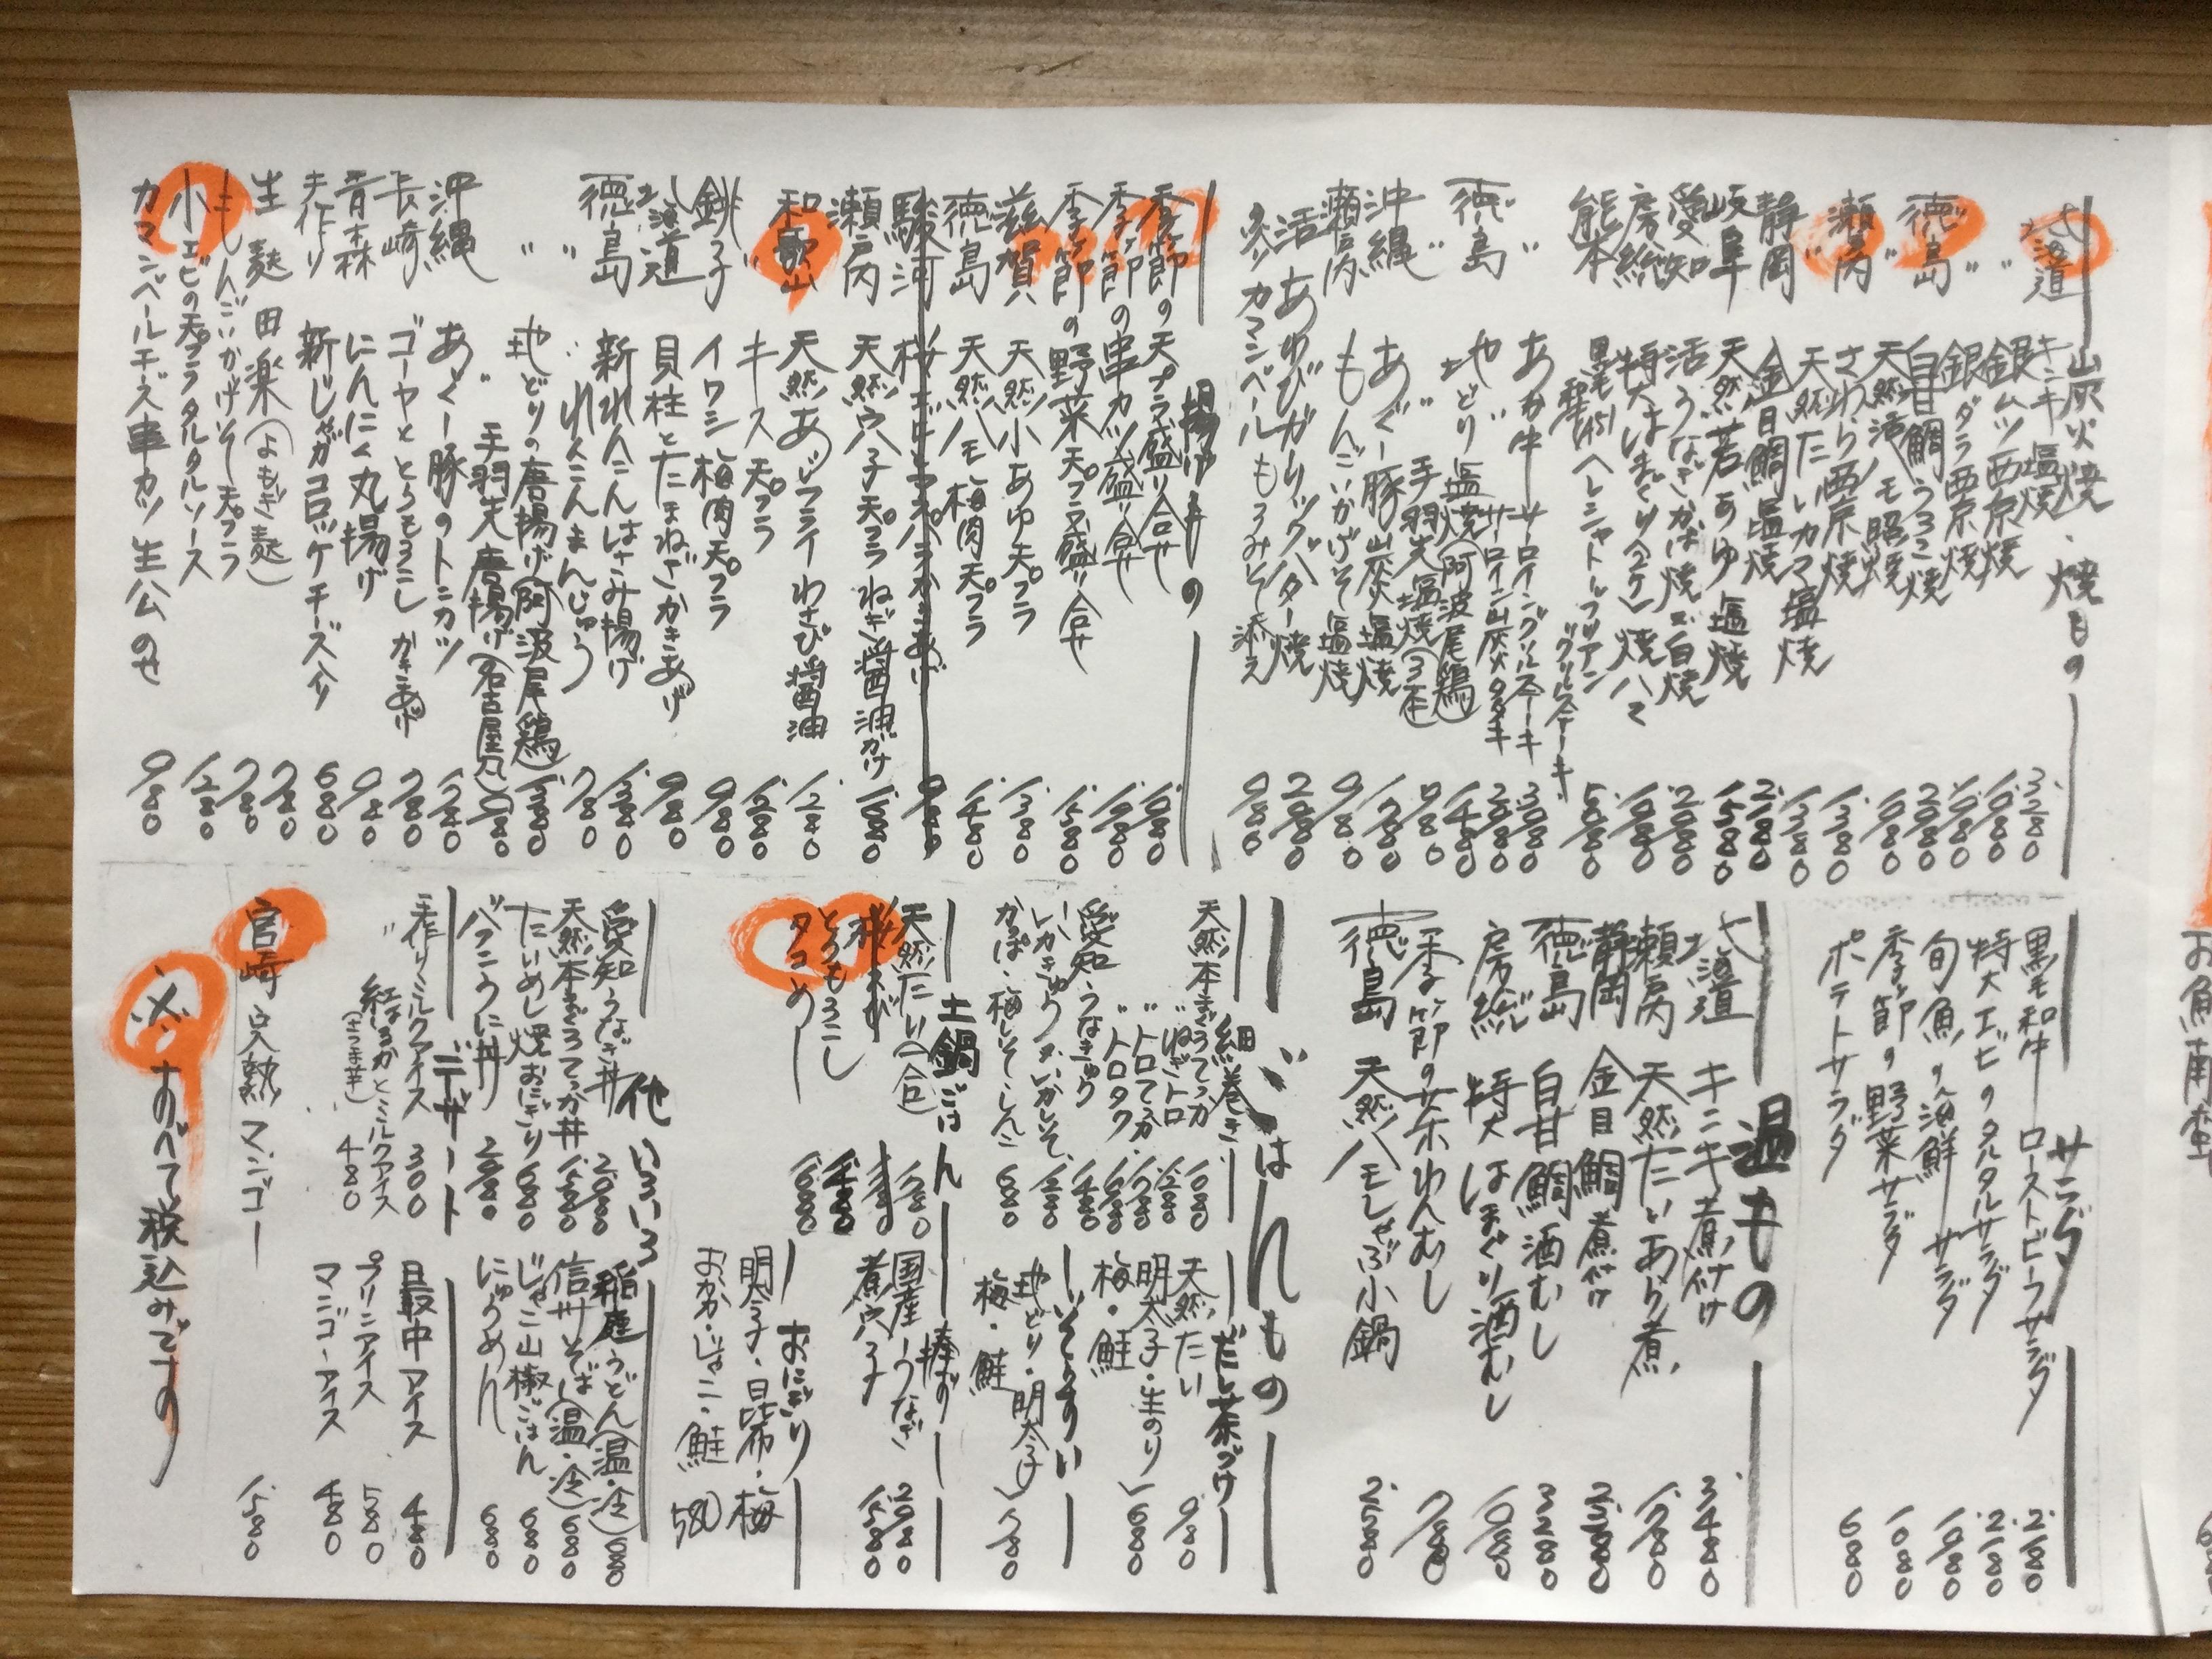 炭火焼・焼もの
北海道 キンキ塩焼 3.280
〃 銀ムツ西京焼 1.980
〃 銀ダラ西京焼 1.980
徳島 白甘鯛うろこ焼 2.980
〃 天然活ハモ照焼 1.980
瀬戸内 さわら西京焼 1.380
〃 天然たいカマ塩焼 1.380
静岡 金目鯛塩焼 2.180
岐阜 天然若あゆ塩焼 1.580
愛知 活うなぎかば焼 or 白焼 2.980
房総 特大はまぐり(2ケ)焼ハマ 1.080
熊本 黒毛和牛(A5)ヘレシャトーブリアングリルステーキ 5.080
あか牛サーロイングリルステーキ 3.080
〃 サーロイン炭火タタキ 2.980
徳島 地どり塩焼(阿波尾鶏) 1.480
〃 手羽先塩焼(3本) 980
沖縄 あぐー豚炭塩焼 1.780
瀬戸内 もんごいかげそ塩焼 980
活あわびガーリックバター焼 2.980
炙りカマンベールもろみそ添え 980
揚げもの
季節の天プラ盛り合せ 1.980
季節の串カツ盛り合せ 1.980
季節の野菜天プラ盛り合せ 1.580
滋賀 天然小あゆ天プラ 1.380
徳島 天然ハモ梅肉天プラ 1.480
駿河 桜エビとアスパラかきあげ 980
瀬戸内 天然穴子天プラねぎ醤油がけ 1.680
和歌山 天然あじフライわさび醤油 1.280
〃 キス天プラ 1.280
銚子 イワシ梅肉天プラ 980
北海道 貝柱とたまねぎかきあげ 980
徳島 新れんこんはさみ揚げ 1.380
〃 れんこんまんじゅう 780
〃 地どりの唐揚げ(阿波尾鶏) 1.380
〃 手羽先唐揚げ(名古屋風) 980
沖縄 あぐー豚のトンカツ 1.780
長崎 ゴーヤととうもろこしかきあげ 780
青森 にんにく丸揚げ 980
手作り 新じゃがコロッケチーズ入り 680
生麩田楽(よもぎ麩) 780
もんごいかげそ天プラ 780
小エビの天プラタルタルソース 1.280
カマンベールチーズ串カツ生ハムのせ 980
サラダ
黒毛和牛ローストビーフサラダ 2.180
特大エビのタルタルサラダ 2.180
旬魚の海鮮サラダ 1.980
季節の野菜サラダ 1.080
ポテトサラダ 680
温もの
北海道 キンキ煮付け 3.480
瀬戸内 天然たいあら煮 1.980
静岡 金目鯛煮付け 2.580
徳島 白甘鯛酒むし 3.280
房総 特大はまぐり酒むし 1.080
季節の茶わんむし 780
徳島 天然ハモしゃぶ小鍋 2.580
ごはんもの
細巻き
天然本まぐろてっか 1.080
〃 ねぎトロ 1.280
〃 トロてっか
〃 トロタク 1.680
愛知 うなきゅう 1.480
いかきゅう・いかしそ 1.280
かっぱ・梅しそ・しんこ 680
だし茶づけ
天然たい 980
明太子・生のり
梅・鮭 680
いそぞうすい
地どり・明太子
梅・鮭 780
土鍋ごはん
天然たい(一合) 1.280
桜エビ
とうもろこし 1.480
タコめし 1.680
棒ずし
国産うなぎ 2.980
煮穴子 1.580
おにぎり
明太子・昆布・梅
おかか・じゃこ・鮭 580
他いろいろ
愛知うなぎ丼 2.980
天然本まぐろてっか丼 1.580
たいめし焼おにぎり 680
バフンうに丼 2.980
稲庭うどん(温・冷) 680
信州そば(温・冷) 680
じゃこ山椒ごはん 680
にゅうめん 680
デザート
手作りミルクアイス 300
〃 紅はるかとミルクアイス
(さつま芋) 480
最中アイス 480
プリンアイス 580
マンゴーアイス 480
宮崎完熟マンゴー 1.580
※すべて税込みです
お魚南蛮